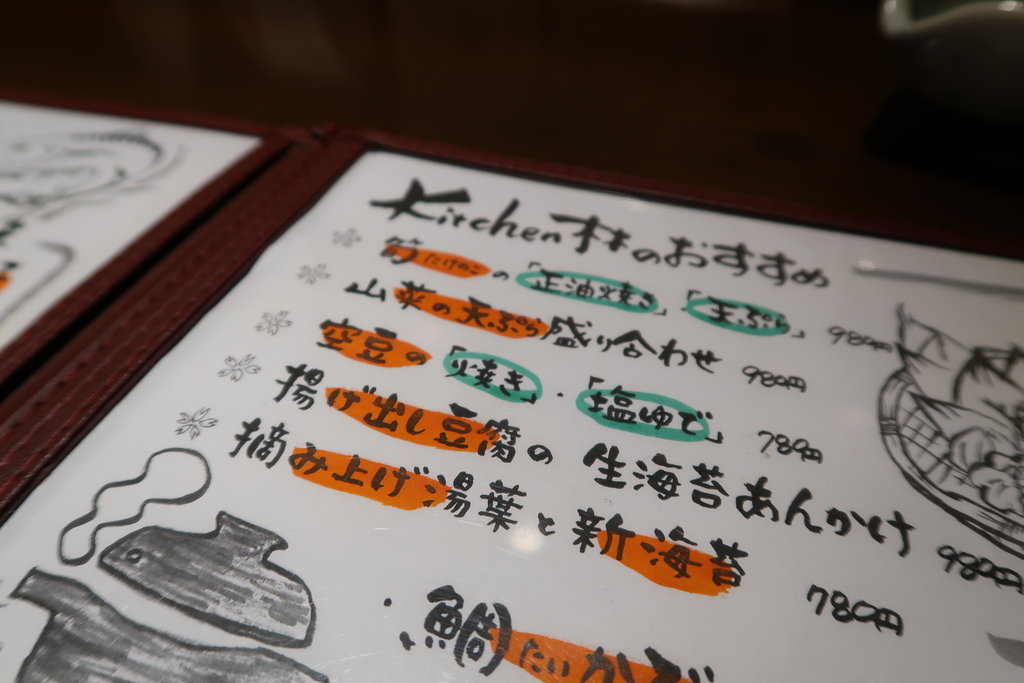 Kitchen林のおすすめ
筍たけのこの「正油焼き」「天ぷら」 980円
山菜の天ぷら盛り合わせ 980円
空豆の「焼き」・「塩ゆで」 789円
揚げ出し豆腐の生海苔あんかけ 980円
摘み上げ湯葉と新海苔 780円
鯛たいかぶ